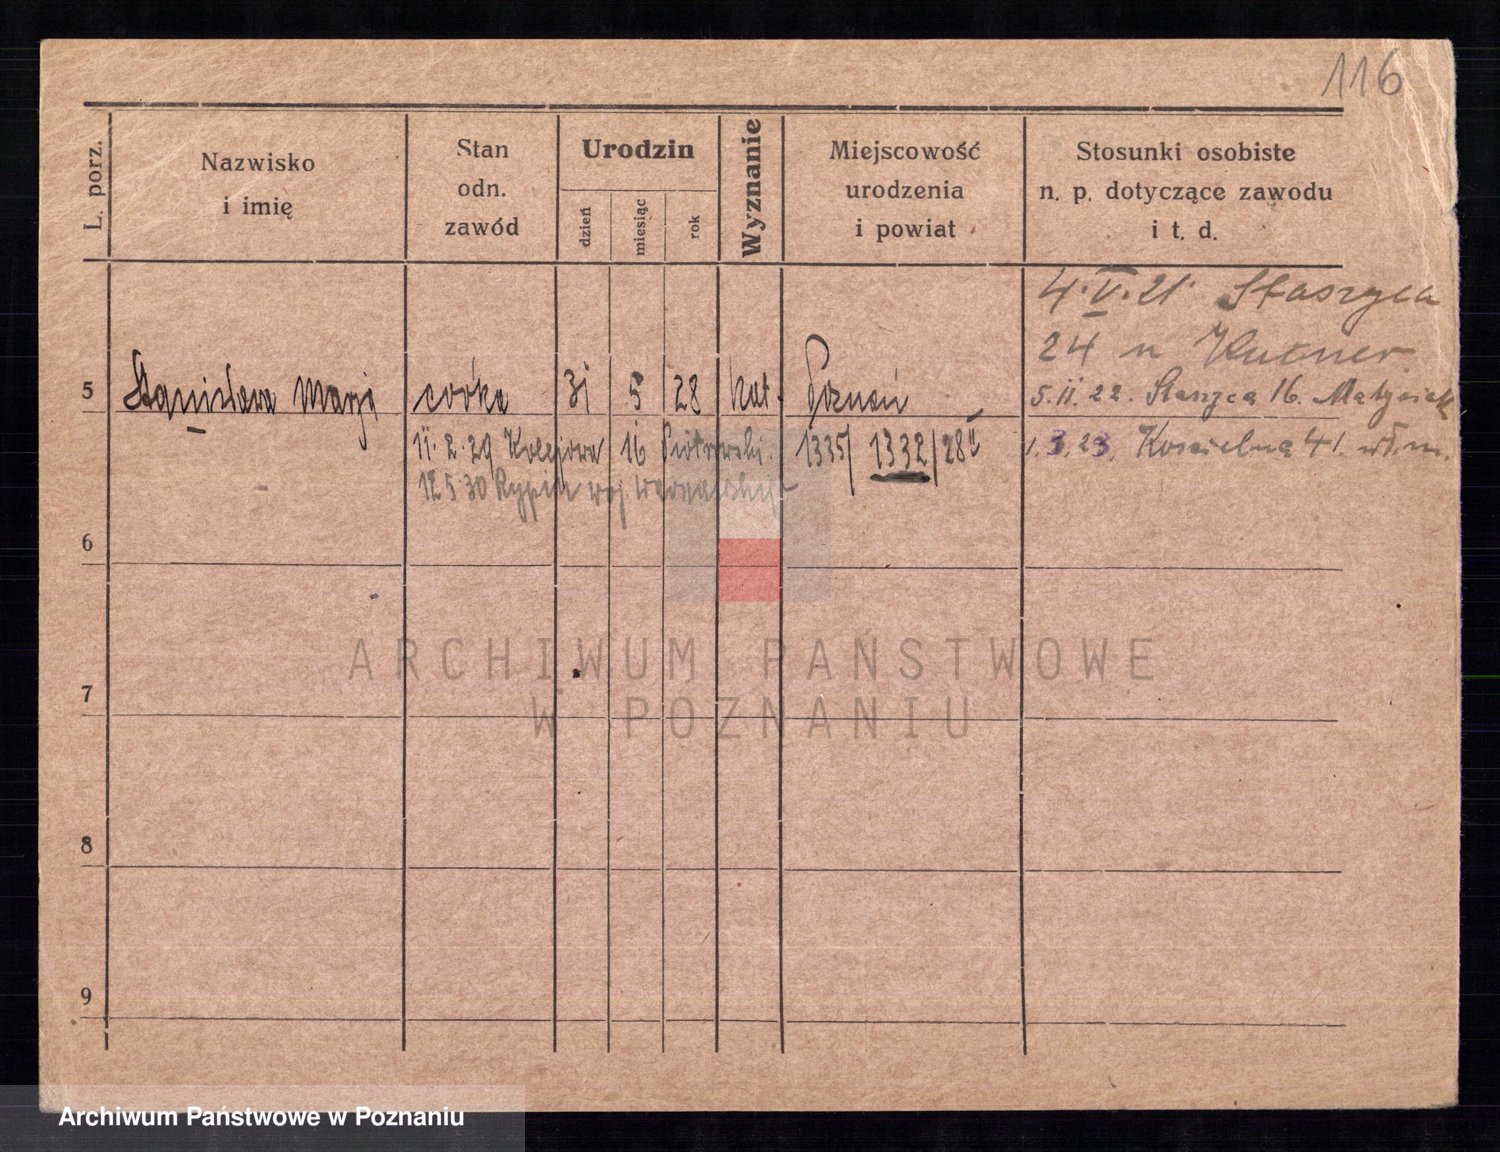 116
L. porz.
Nazwisko
i imię
Stan
odn.
zawód
Urodzin
dzień
miesiąc
rok
Wyznanie
Miejscowość
urodzenia
i powiat
Stosunki osobiste
n. p. dotyczące zawodu
i t. d.
4.V.21. Staszyca
24 u Kutner
5 Stanisława Marja córka 31 5 28 kat. Poznań
5.II.22. Staszyca 16. Matysiak
11.2.29 Kolejowa 16 Piotrowski. 1335/1332/28
1.3.23. Kościelna 41. wł. m.
12 5 30 Rypin woj. Warszawskie
6
7
8
9
ARCHIWUM PAŃSTWOWE
W POZNANIU
Archiwum Państwowe w Poznaniu